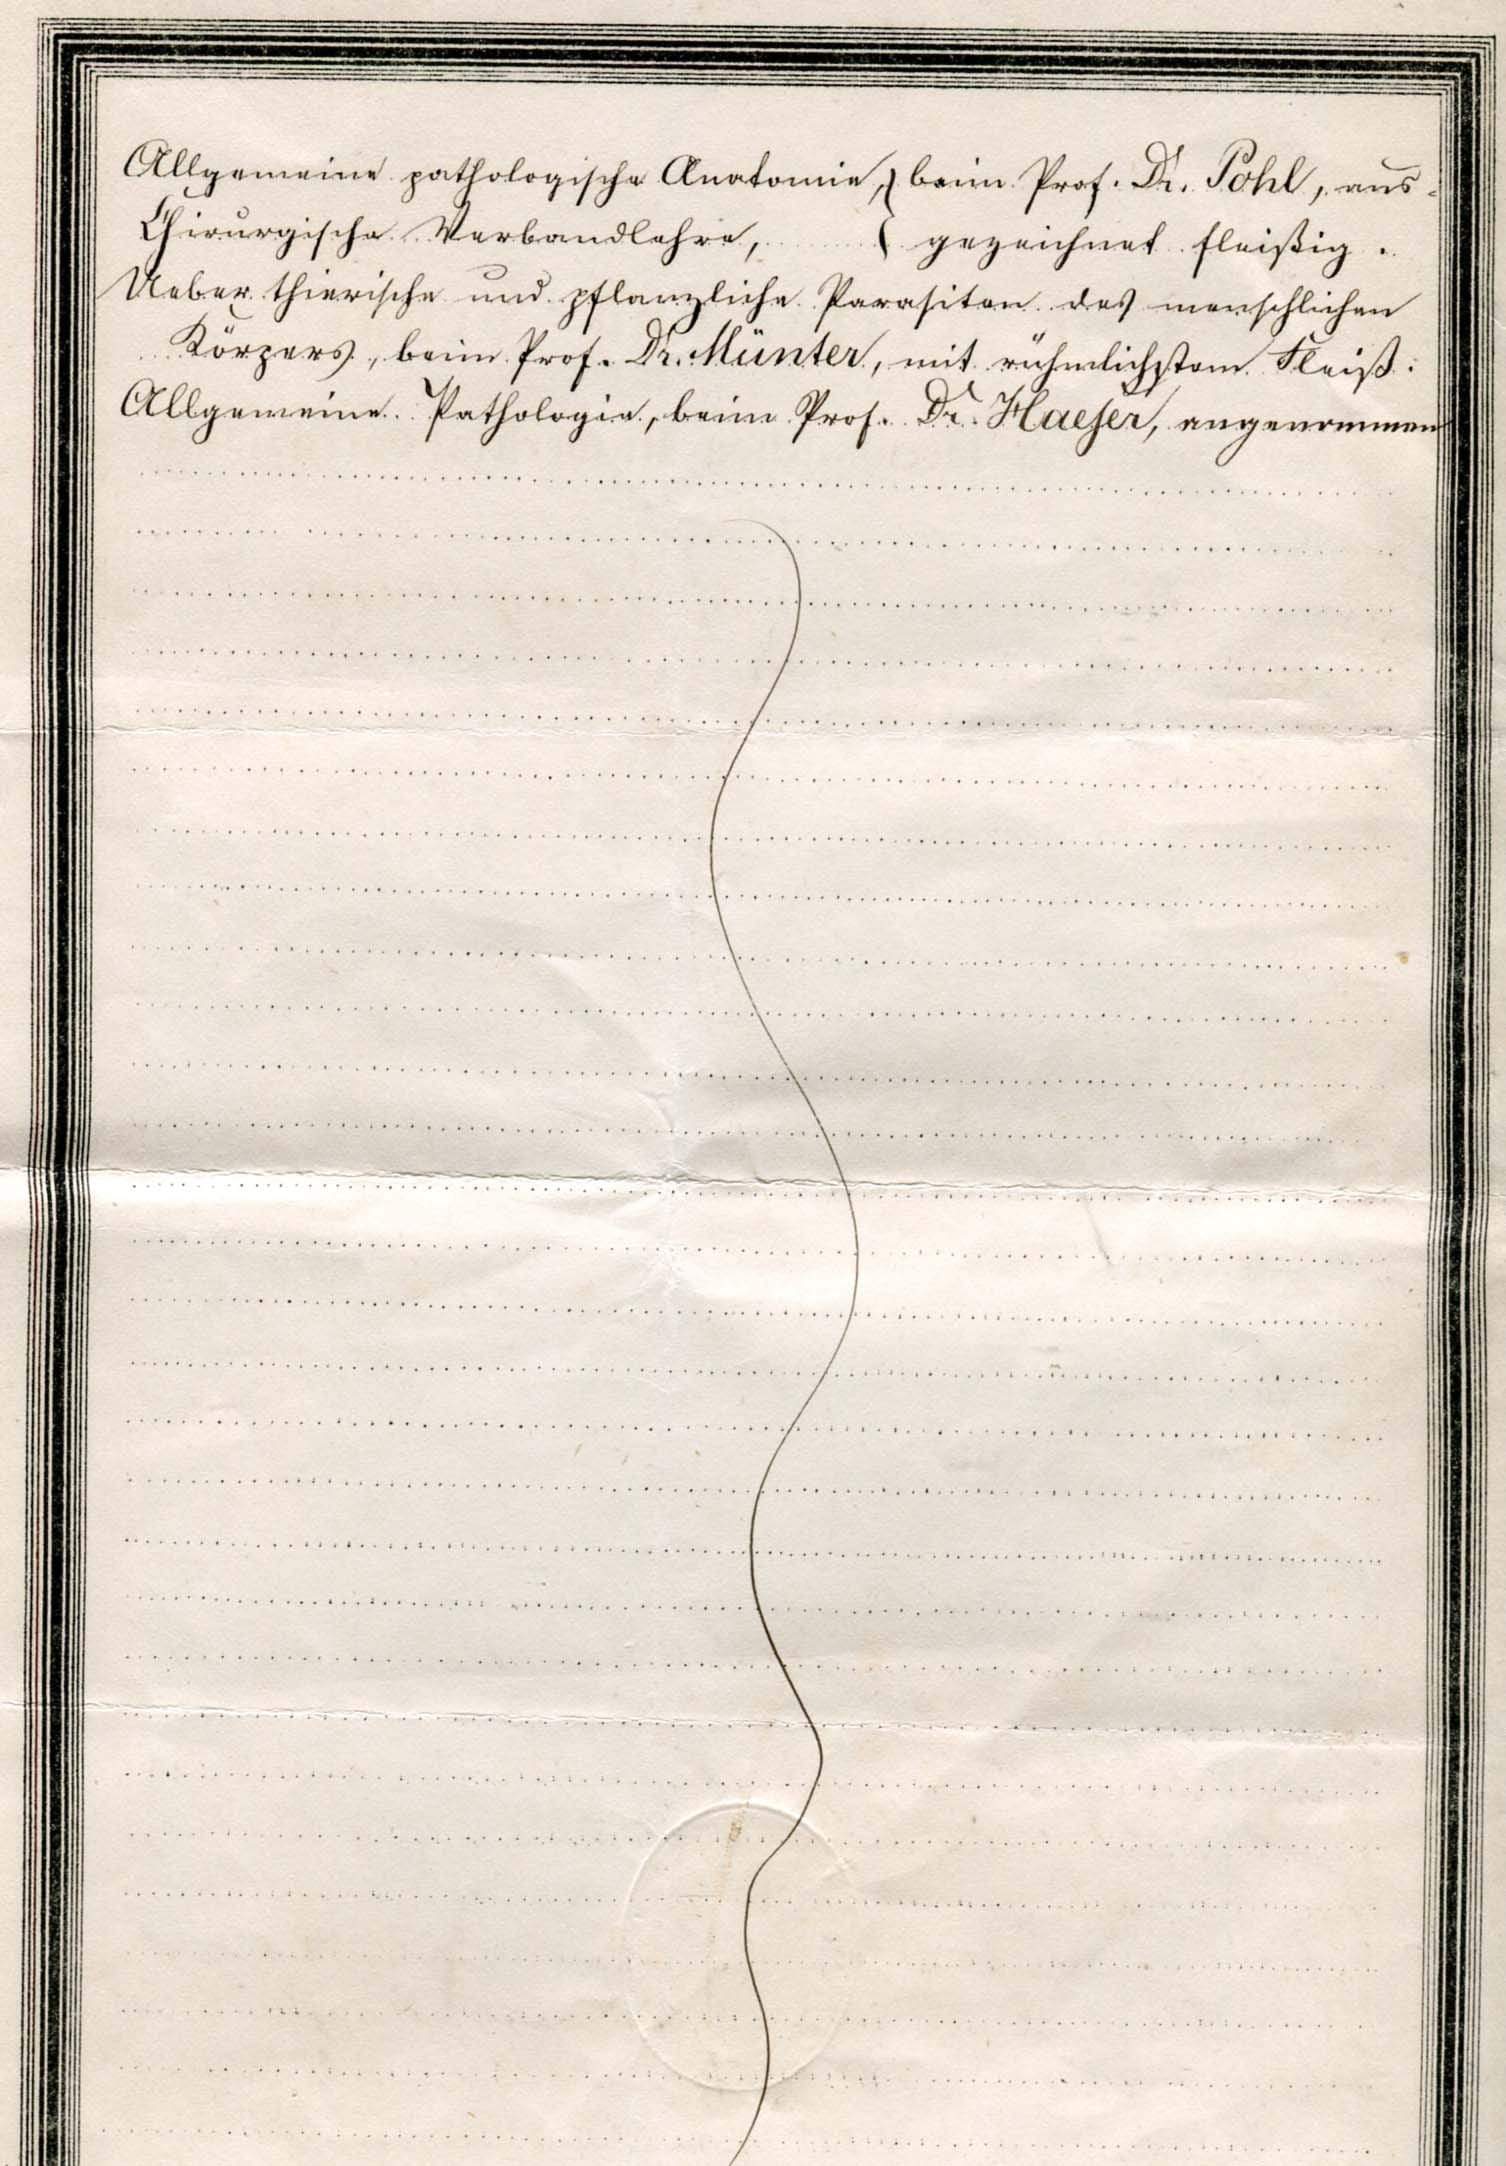 Allgemeine pathologische Anatomie, } beim Prof. Dr. Pohl, aus-
Chirurgische Verbandlehre, } gezeichnet fleißig.
Ueber thierische und pflanzliche Parasiten des menschlichen
Körpers, beim Prof. Dr. Münter, mit rühmlichstem Fleiß:
Allgemeine Pathologie, beim Prof. Dr. Haeser, angenommen